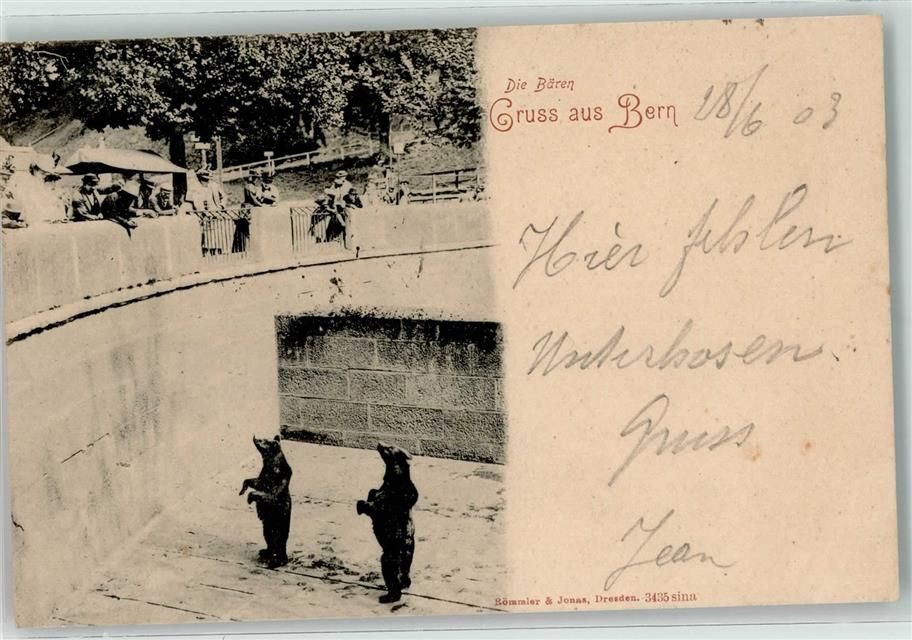 Die Bären
Gruss aus Bern 28/6 03
Hier fehlen
Unterhosen
Gruss
Jean
Römmler & Jonas, Dresden. 3435 sina